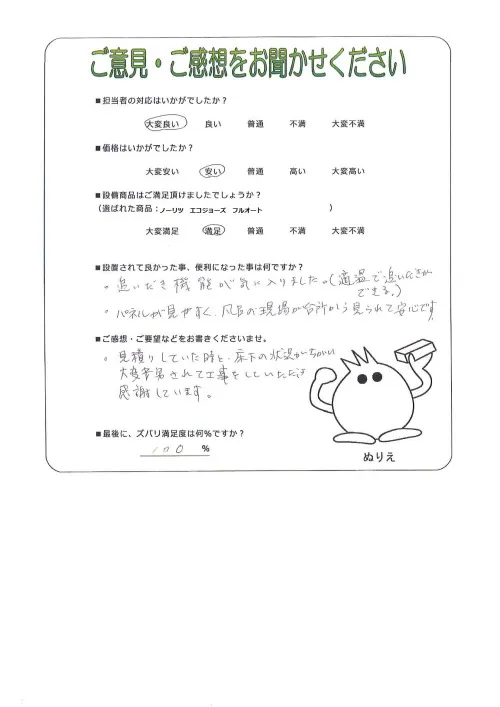 ご意見・ご感想をお聞かせください
■担当者の対応はいかがでしたか？
大変良い 良い 普通 不満 大変不満
■価格はいかがでしたか？
大変安い 安い 普通 高い 大変高い
■設備商品はご満足頂けましたでしょうか？
(選ばれた商品：ノーリツ エコジョーズ フルオート )
大変満足 満足 普通 不満 大変不満
■設置されて良かった事、便利になった事は何ですか？
・追いだき機能が気に入りました。(適温で追いだきが
できる。)
・パネルが見やすく、風呂の現場が台所から見られて安心です。
■ご感想・ご要望などをお書きくださいませ。
・見積りしていた時と、床下の状況がちがい
大変苦労されて工事をしていただき
感謝しています。
■最後に、ズバリ満足度は何％ですか？
100 ％
ぬりえ